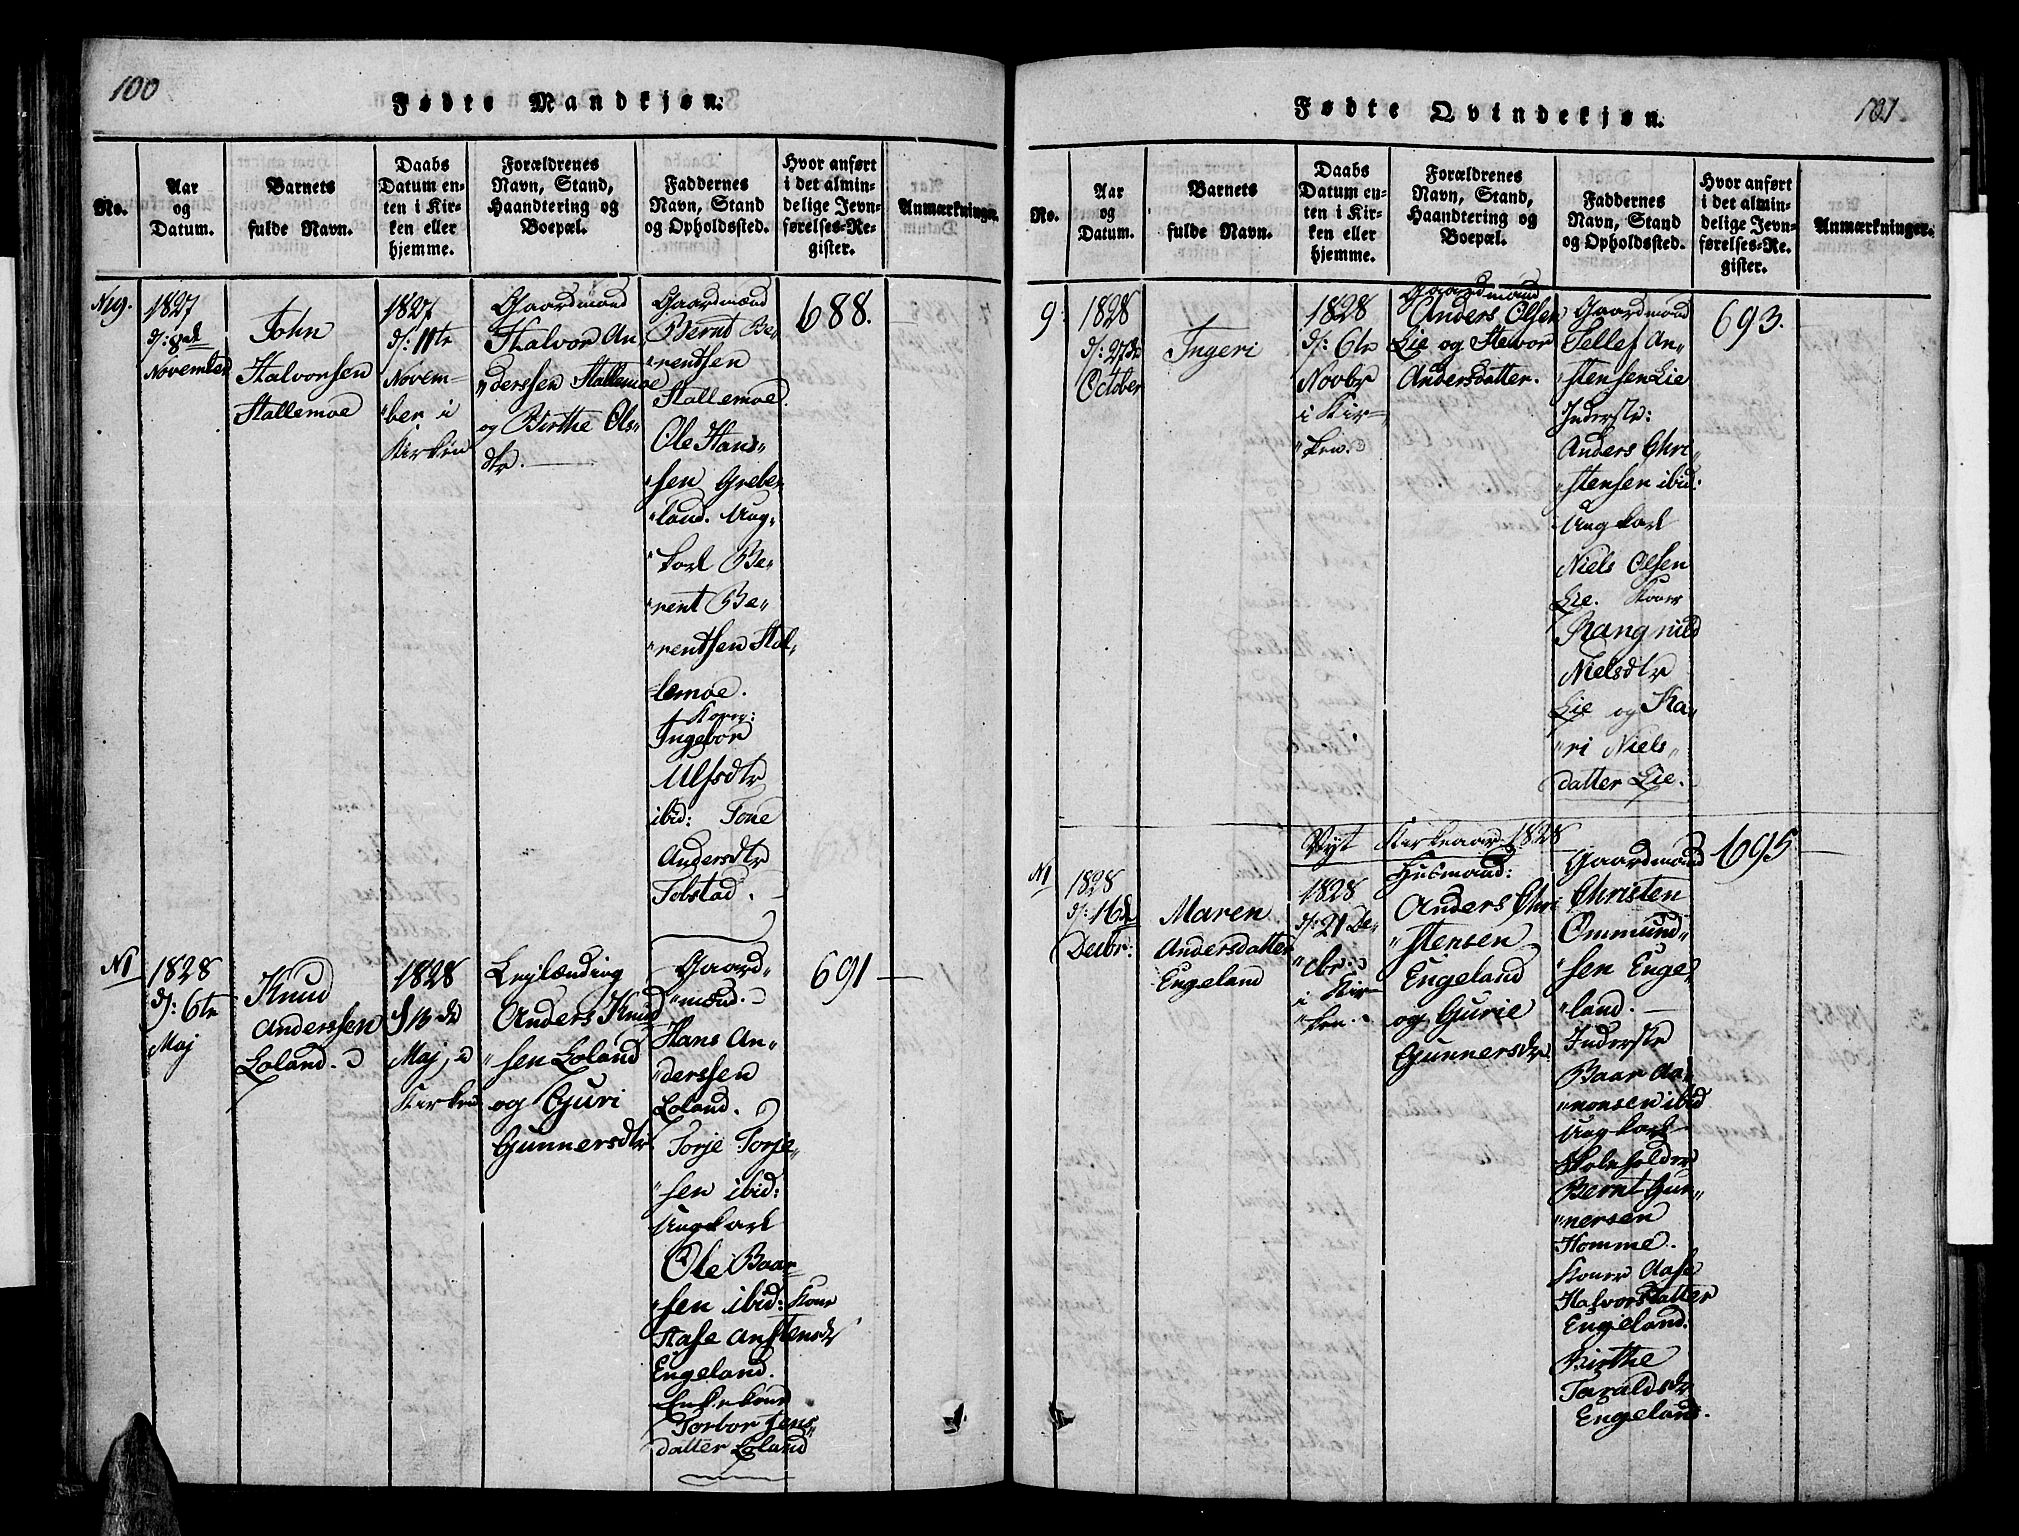 100
Fødte Mandkjøn.
No.
Aar
og
Datum.
Barnets
fulde Navn.
Daabs
Datum en-
ten i Kir-
ken eller
hjemme.
Forældrenes
Navn, Stand,
Haandtering og
Boepæl.
Faddernes
Navn, Stand
og Opholdssted.
Hvor anført
i det almin-
delige Jevn-
førelses-Re-
gister.
Anmærkninger.
N19.
1827
d: 8de
November
John
Halvorsen
Stallemoe
1827
d: 11te
Novem-
"ber i
Kirken
Gaardmand
Halvor An
"derssen Stallemoe
og Birthe Ols"
dtr.
Gaardmænd
Bernt Be-
"rendsen
Stallemoe.
Ole Hans
"sen Grebe
"land. Ung"
"karl Be"
"rent Be"
"rentsen Stal"
lemoe.
Koner:
Ingebor
Ulfsdtr
ibid: Tone
Andersdtr
Tobstad.
688.
N1
1828
d: 6te
Maj
Knud
Anderssen
Loland.
1828
d 13de
Maj, i
Kirken
Lejlænding
Anders Knud
"sen Loland
og Guri
Gunnersdtr
Gaard"
"mænd.
Hans An"
"derssen
Loland.
Torje Torje"
"sen ibid:
Ungkarl
Ole Baar
"sen ibid: Kone
Aase Anstensdtr
Engeland.
Enkekone
Torbor Jens"
datter Loland
691
101.
Fødte Qvindekjøn.
No.
Aar
og
Datum.
Barnets
fulde Navn.
Daabs
Datum en-
ten i Kir-
ken eller
hjemme.
Forældrenes
Navn, Stand,
Haandtering og
Boepæl.
Faddernes
Navn, Stand
og Opholdssted.
Hvor anført
i det almin-
delige Jevn-
førelses-Re-
gister.
Anmærkninger.
9.
1828
d: 27de
October
Ingeri
1828
d: 6te
Novbr
i Kir-
"ken.
Gaardmand
Anders Olsen
Lie og Stevor
Andersdatter.
Gaardmand
Tellef An"
"stensen Lie
Inderste:
Anders Chri"
"stensen ibid:
Ungkarl
Niels Olsen
Lie. Koner
Rangnild
Nielsdtr
Lie og Ka"
"ri Niels"
datter Lie.
693.
Nyt Kirkeaar 1828
N1
1828
d: 16de
Decbr:
Maren
Andersdatter
Engeland
1828
d: 21 De"
"cbr:
i Kir-
"ken.
Husmand:
Anders Chri
"stensen
Engeland
og Gurie
Gunnersdtr.
Gaardmænd
Christen
Ommund"
"sen Enge"
"land.
Inderste
Baar Aa"
"nonsen ibid
Ungkarl
Skoleholder
Bernt Gun"
"nersen
Homme.
Koner Aase
Halvorsdatter
Engeland.
Birthe
Taraldsdtr
Engeland.
695